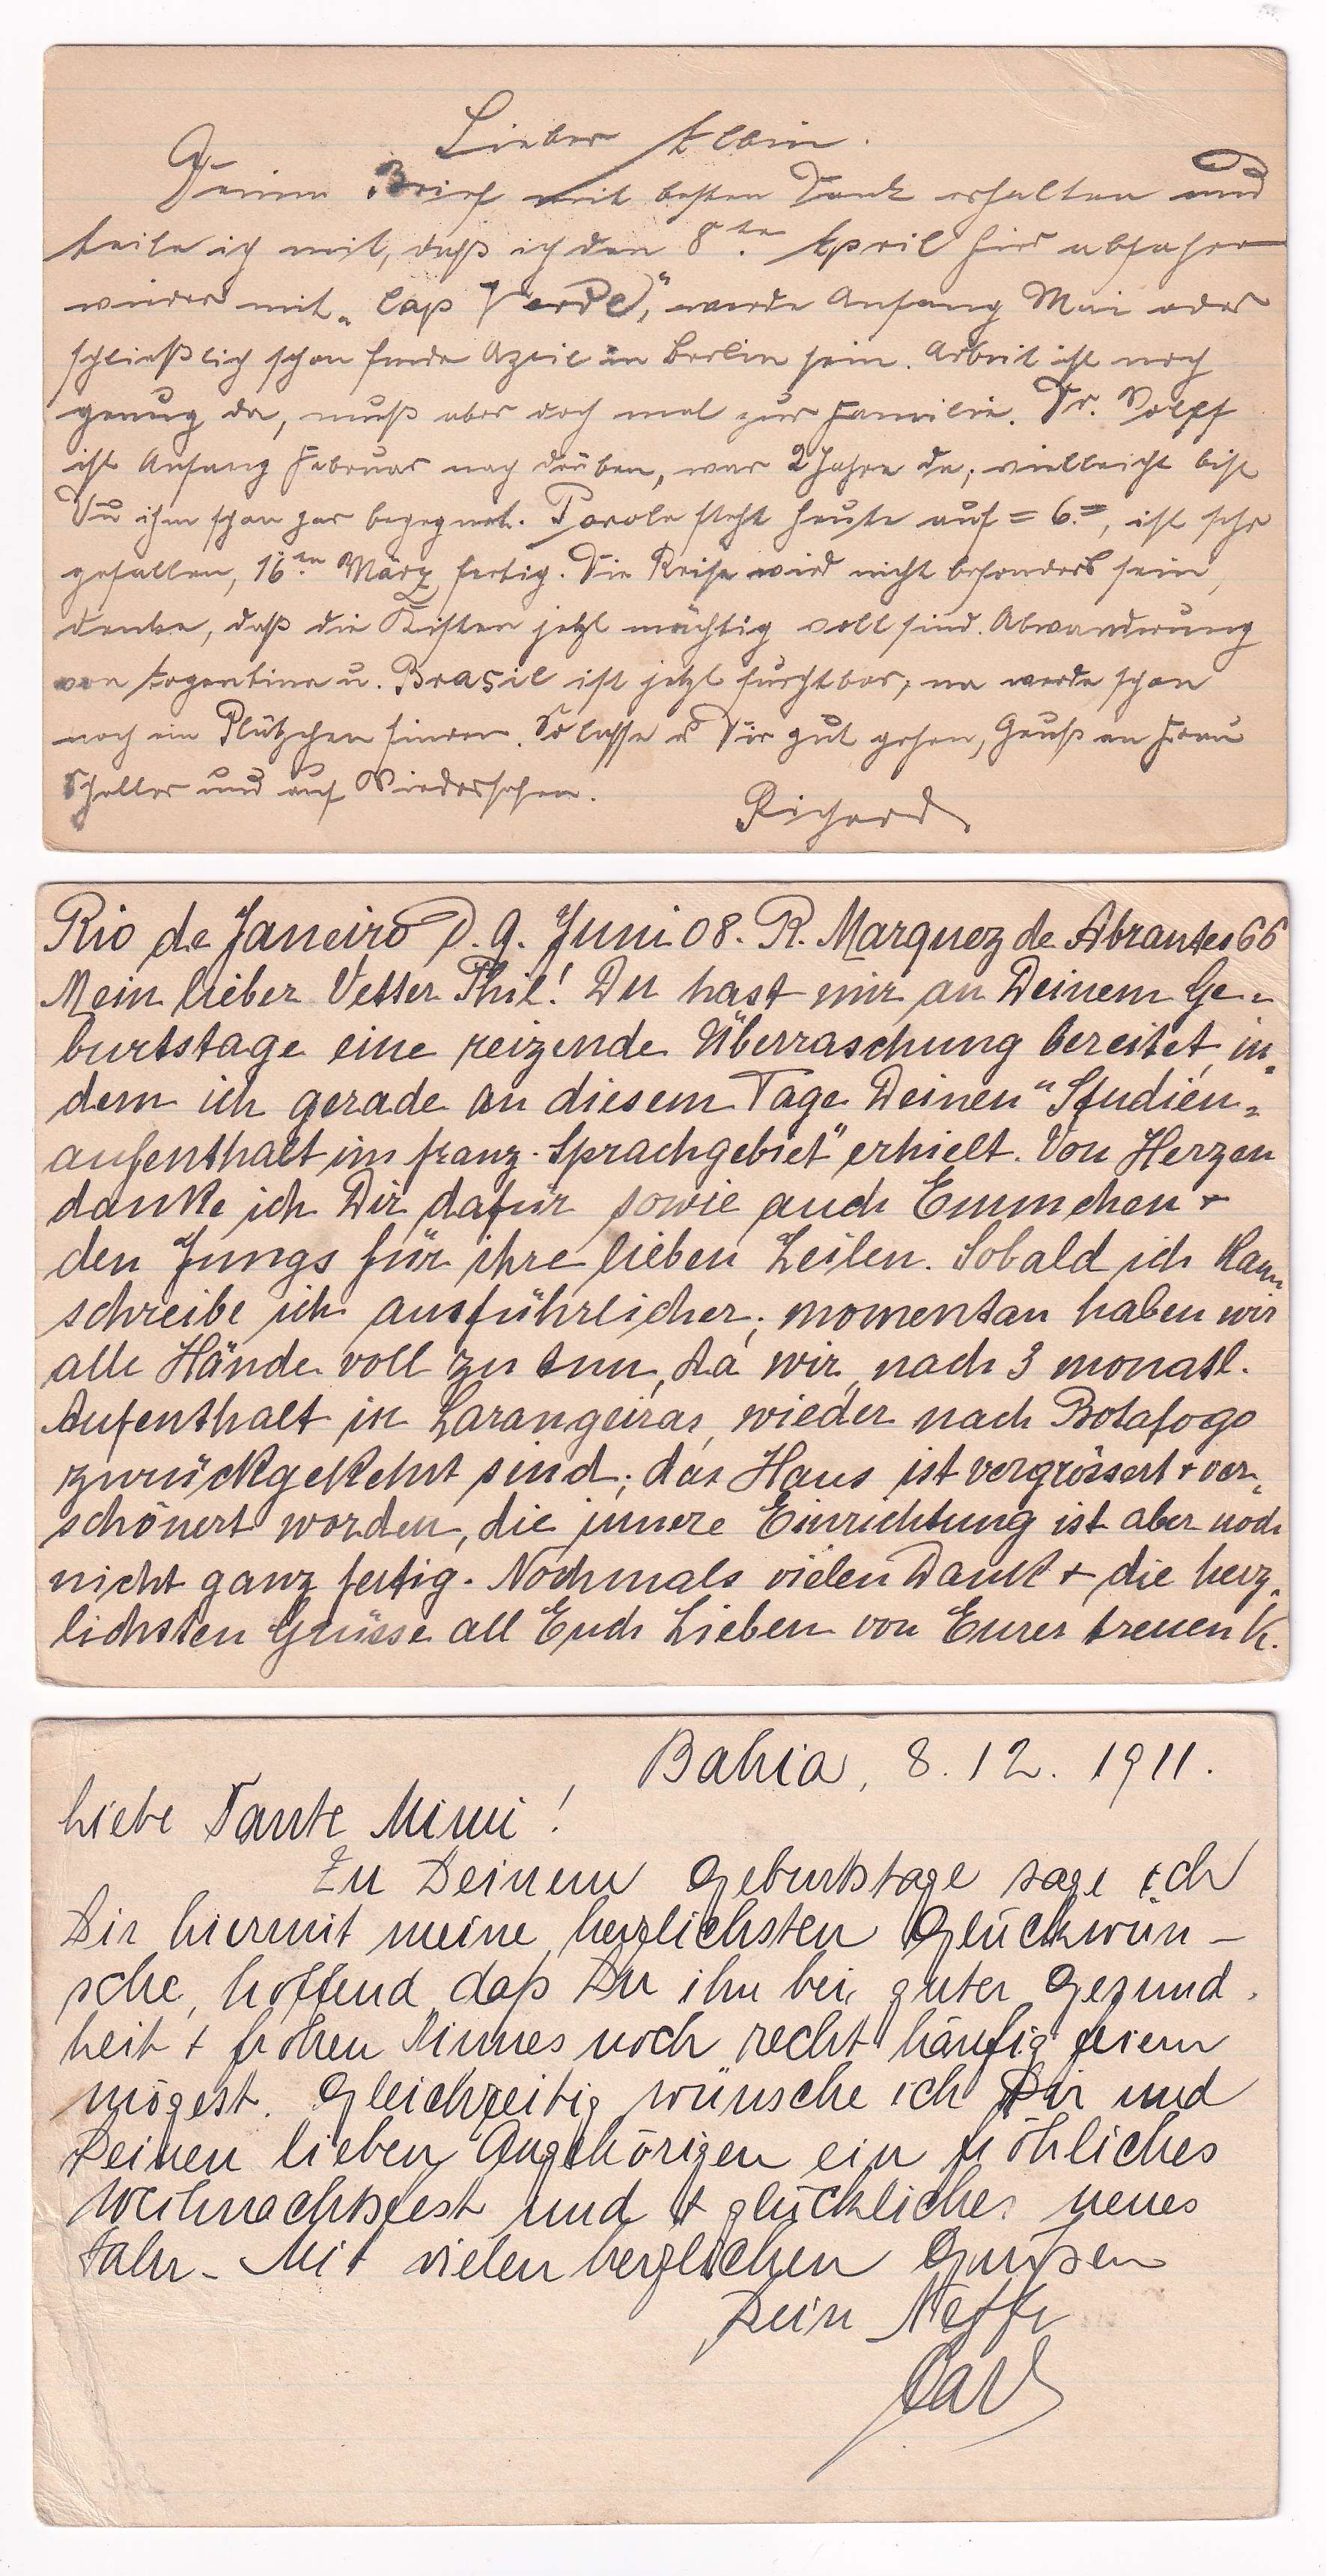 Lieber Albin.
Deinen Brief mit besten Dank erhalten und
teile ich mit, daß ich den 8ten April hier abfahre
wieder mit „Cap Verde", werde Anfang Mai oder
schließlich schon Ende April in Berlin sein. Arbeit ist noch
genug da, muß aber doch mal zur Familie. Dr. Wolff
ist Anfang Februar nach drüben, war 2 Jahre da, vielleicht bist
Du ihm schon gar begegnet. Parole steht heute auf = 6.=, ist sehr
gefallen, 16ten März fertig. Die Reise wird nicht besonders sein,
denke, daß die Kisten jetzt mächtig voll sind. Abwanderung
von Argentina u. Brasil ist jetzt furchtbar, na werde schon
noch ein Plätzchen finden. So lasse Dir gut gehen, Gruß an Frau
Scheller und auf Wiedersehen.
Richard
Rio de Janeiro d. 9. Juni 08. R. Marquez de Abrantes 66
Mein lieber Vetter Phil! Du hast mir an Deinem Ge=
burtstage eine reizende Überraschung bereitet, in=
dem ich gerade an diesem Tage Deinen "Studien=
aufenthalt im franz. Sprachgebiet" erhielt. Von Herzen
danke ich Dir dafür sowie auch Emmchen +
den Jungs für ihre lieben Zeilen. Sobald ich kann
schreibe ich ausführlicher; momentan haben wir
alle Hände voll zu tun, da wir, nach 3 monatl.
Aufenthalt in Larangeiras, wieder nach Botafogo
zurückgekehrt sind; das Haus ist vergrössert + ver=
schönert worden, die innere Einrichtung ist aber noch
nicht ganz fertig. Nochmals vielen Dank + die herz=
lichsten Grüsse all Euch Lieben von Eurer treuen K.
Bahia, 8. 12. 1911.
Liebe Tante Mimi!
Zu Deinem Geburtstage sage ich
Dir hiermit meine herzlichsten Glückwün-
sche, hoffend, daß Du ihn bei guter Gesund-
heit + frohen Sinnes noch recht häufig feiern
mögest. Gleichzeitig wünsche ich Dir und
Deinen lieben Angehörigen ein fröhliches
Weihnachtsfest und + glückliches neues
Jahr. Mit vielen herzlichen Grüßen
Dein Neffe
Carl